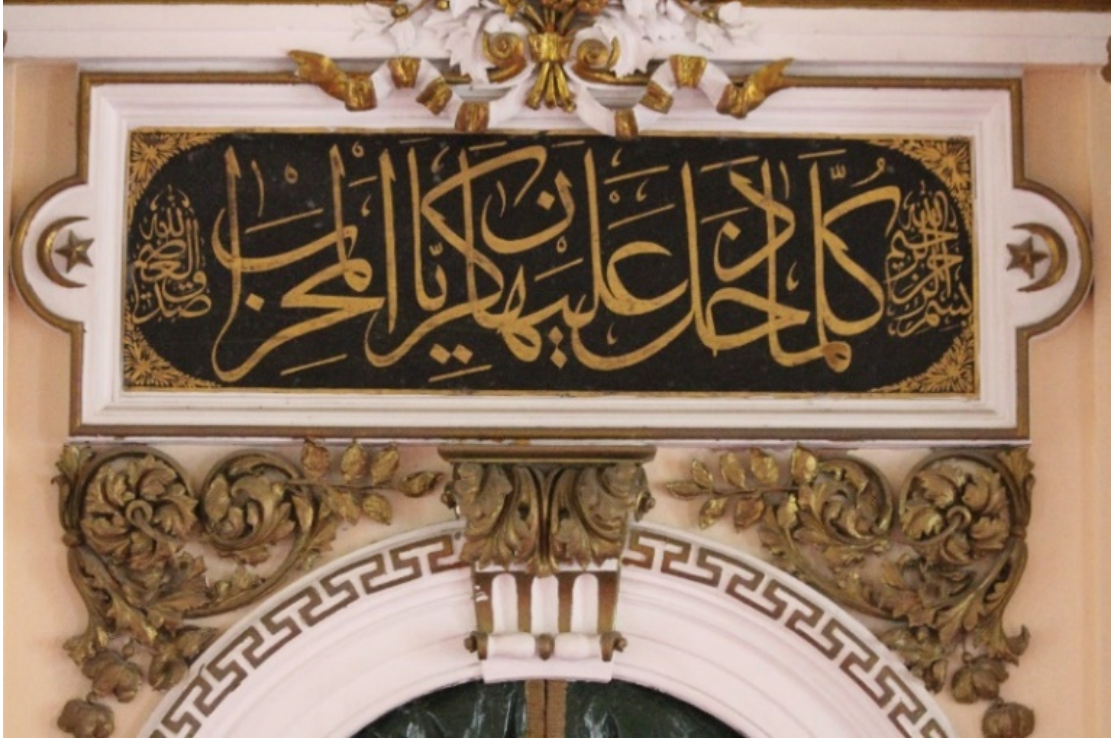 بسم الله الرحمن الرحيم
كلما دخل عليها زكريا المحراب
صدق الله العظيم